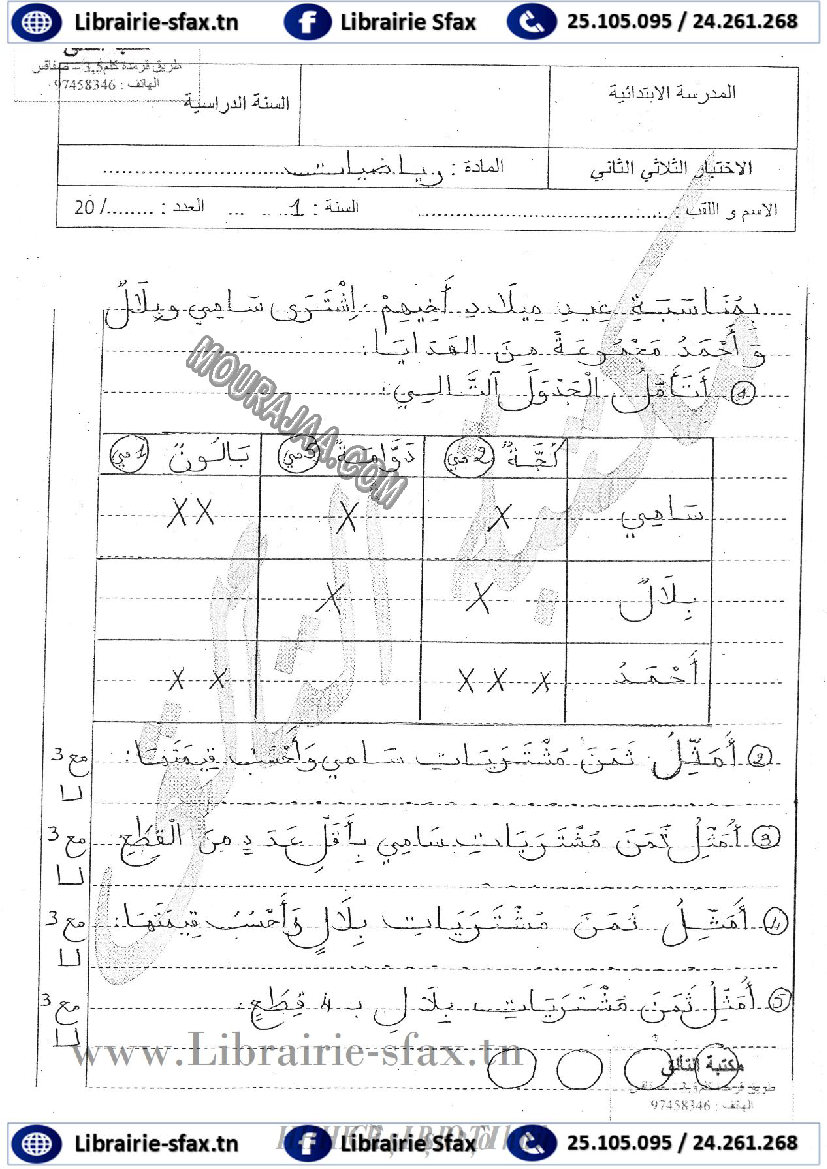 Librairie-sfax.tn Librairie Sfax 25.105.095 / 24.261.268
طريق قرمدة كلم3,5 – صفاقس
الهاتف : 97458346
المدرسة الابتدائية
السنة الدراسية
الاختبار الثلاثي الثاني
المادة : رياضيات
الاسم و اللقب : ........................................ السنة : 1 ... ...... العدد : ......../ 20
بِمُنَاسَبَةِ عِيدِ مِيلَادِ أَخِيهِمْ، اِشْتَرَى سَامِي وبِلَالٌ
وَ أَحْمَدُ مَجْمُوعَةً مِنَ الهَدَايَا:
1 أَتَأَمَّلُ الْجَدْوَلَ التَّالِي:
كُجَّةٌ 2مي
دَوَّامَةٌ 5مي
بَالُونٌ 1مي
سَامِي X X XX
بِلَالٌ X X
أَحْمَدُ X X X X X
2 أُمَثِّلُ ثَمَنَ مُشْتَرَيَاتِ سَامِي وَأَحْسُبُ قِيمَتَهَا:
مع 3
3 أُمَثِّلُ ثَمَنَ مُشْتَرَيَاتِ سَامِي بِأَقَلِّ عَدَدٍ مِنَ الْقِطَعِ
مع 3
4 أُمَثِّلُ ثَمَنَ مُشْتَرَيَاتِ بِلَالٍ وَأَحْسُبُ قِيمَتَهَا:
مع 3
5 أُمَثِّلُ ثَمَنَ مُشْتَرَيَاتِ بِلَالٍ بـ 4 قِطَعٍ:
مع 3
MOURAJAA.COM
www.Librairie-sfax.tn
مكتبة التألق
الهاتف : 97458346
Librairie-sfax.tn Librairie Sfax 25.105.095 / 24.261.268